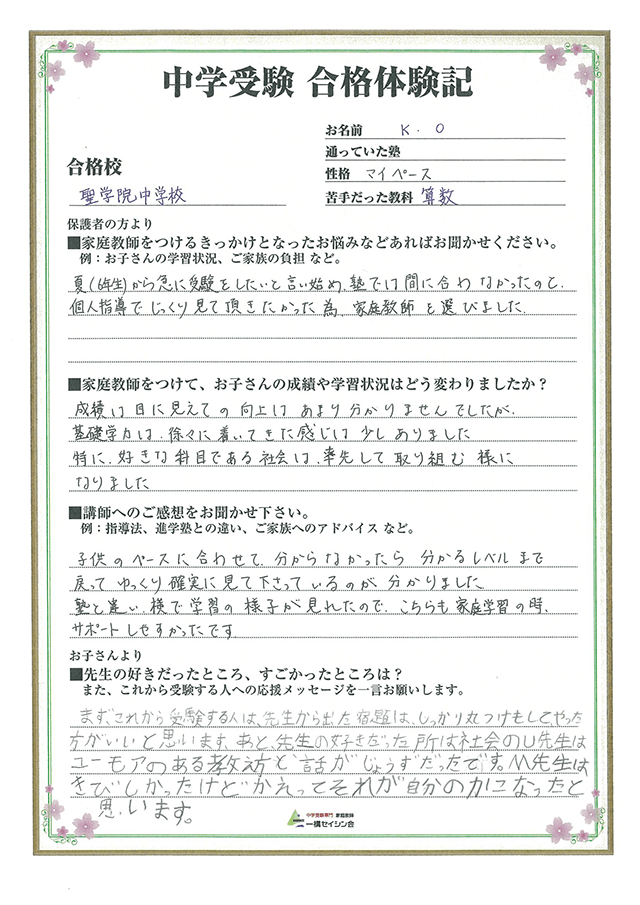 中学受験 合格体験記
お名前 K.O
通っていた塾
合格校
性格 マイペース
聖学院中学校
苦手だった教科 算数
保護者の方より
■家庭教師をつけるきっかけとなったお悩みなどあればお聞かせください。
例：お子さんの学習状況、ご家族の負担 など。
夏(6年生)から急に受験をしたいと言い始め、塾では間に合わなかったので、
個人指導でじっくり見て頂きたかった為、家庭教師を選びました。
■家庭教師をつけて、お子さんの成績や学習状況はどう変わりましたか？
成績は目に見えての向上はあまり分かりませんでしたが、
基礎学力は、徐々に着いてきた感じは少しありました
特に、好きな科目である社会は、率先して取り組む様に
なりました
■講師へのご感想をお聞かせ下さい。
例：指導法、進学塾との違い、ご家族へのアドバイス など。
子供のペースに合わせて、分からなかったら 分かるレベルまで
戻ってゆっくり確実に見て下さっているのが 分かりました
塾と違い、横で学習の様子が見れたので、こちらも家庭学習の時、
サポートしやすかったです
お子さんより
■先生の好きだったところ、すごかったところは？
また、これから受験する人への応援メッセージを一言お願いします。
まず、これから受験する人は、先生から出た宿題は、しっかり丸つけもしてやった
方がいいと思います。あと、先生の好きだった所は社会のU先生は
ユーモアのある教え方と話がじょうずだったです。M先生は
きびしかったけどかえってそれが自分の力になったと
思います。
中学受験専門 家庭教師
一橋セイシン会